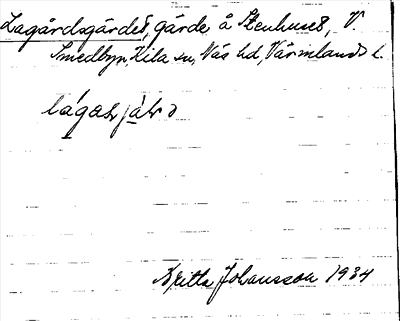 Lagårdsgärdet, gärde å Stenhuset, V.
Smedbyn, Kila sn, Näs hd, Värmlands l.
Britta Johansson 1934